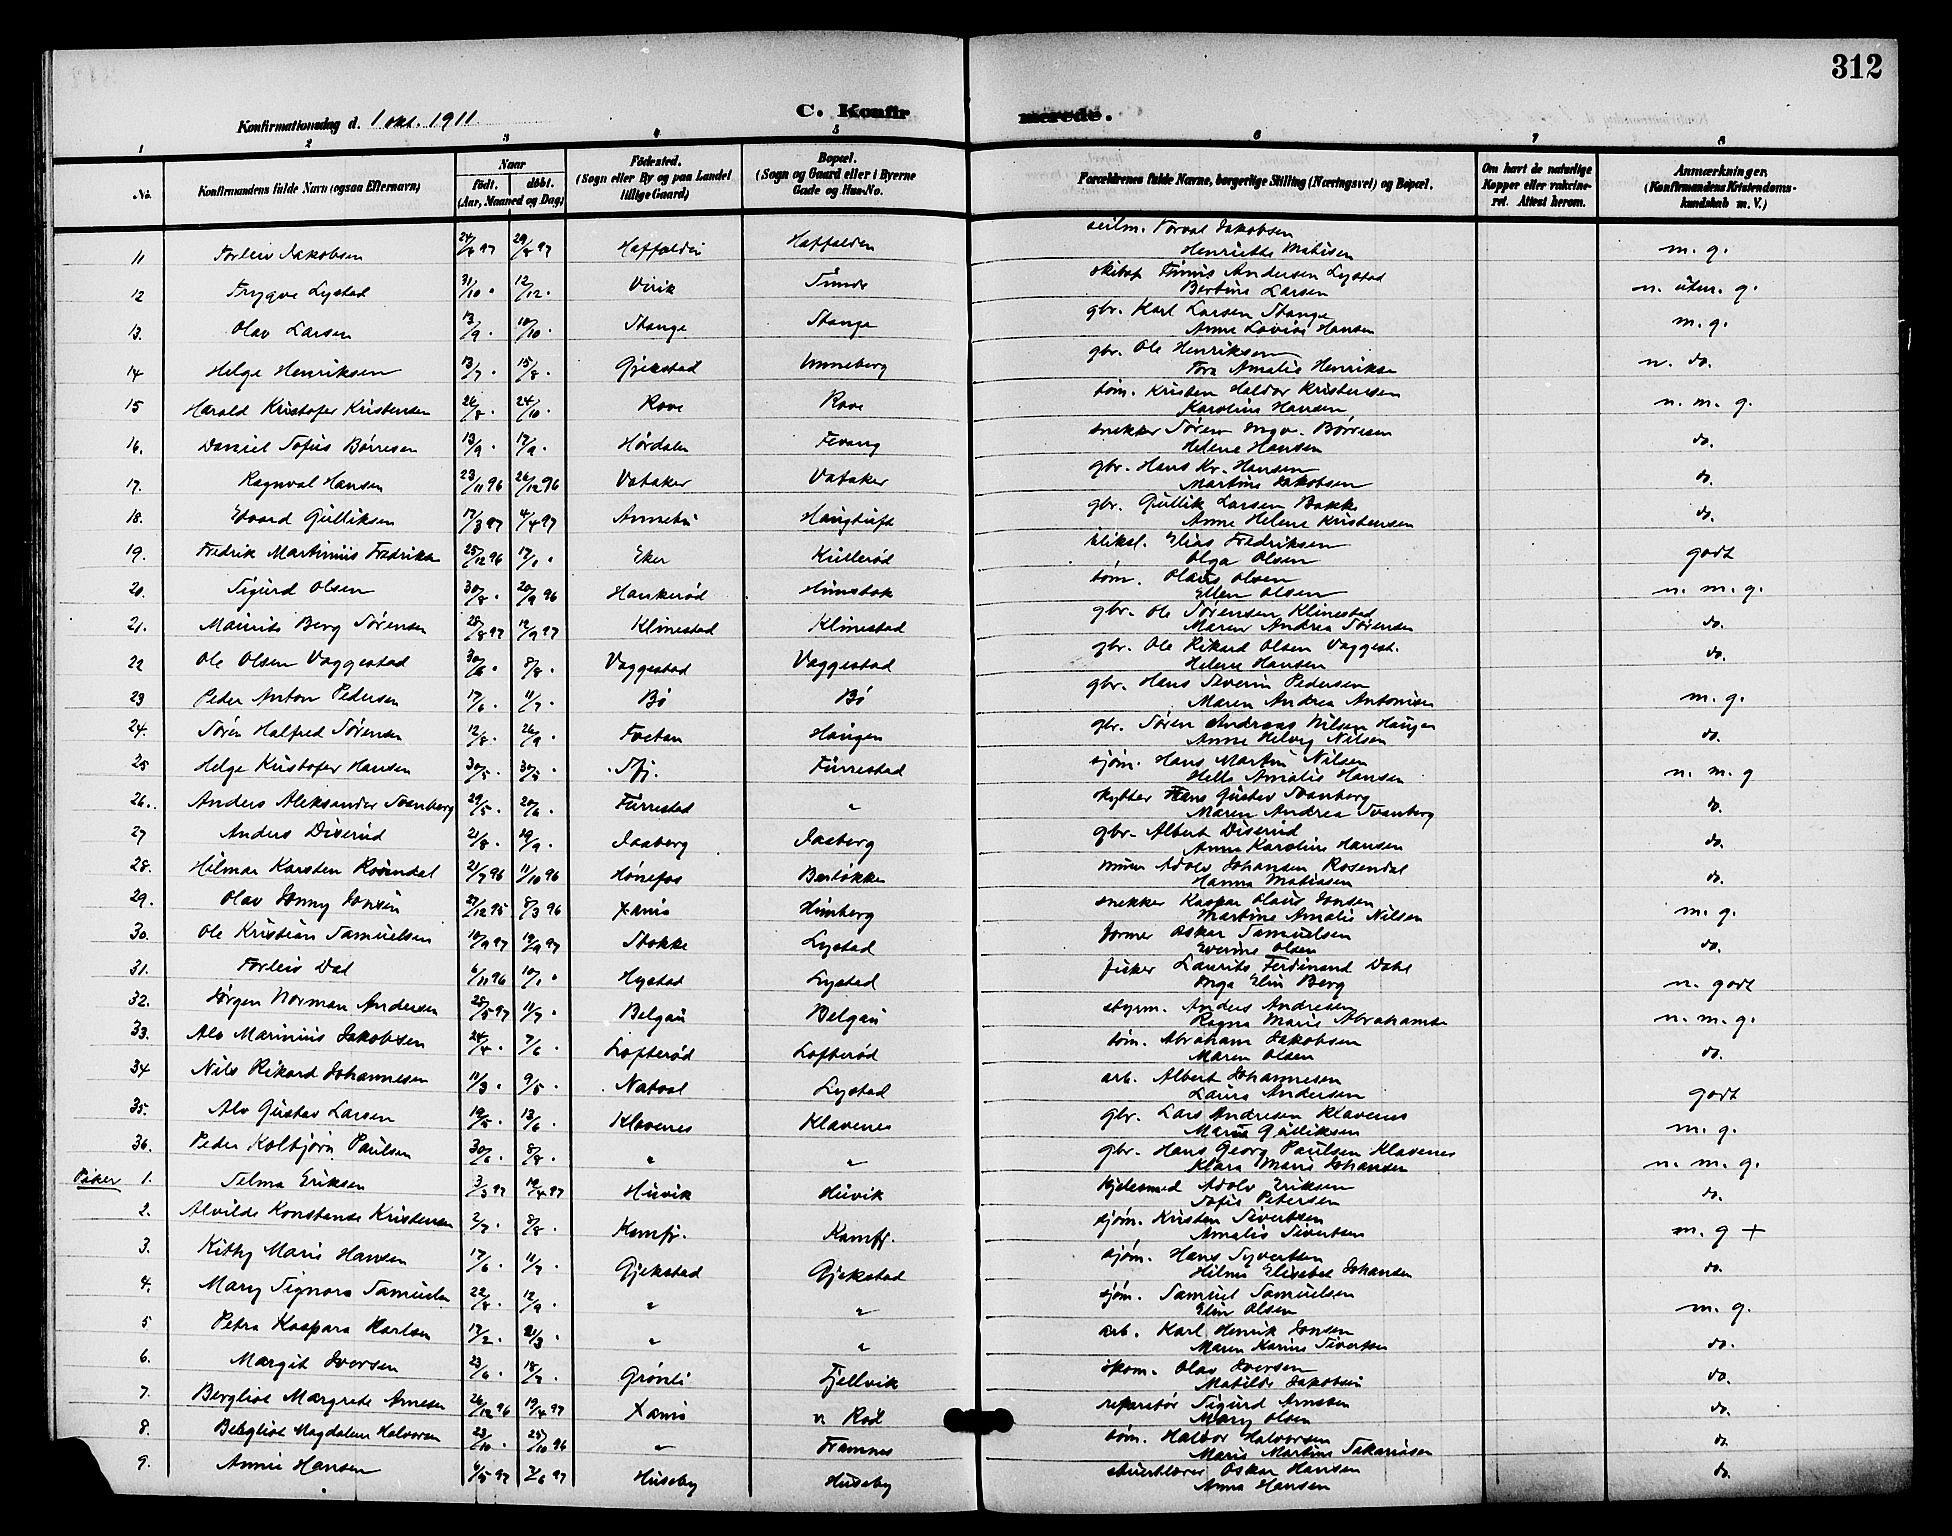 312
Konfirmationsdag d. 1 okt. 1911
C. Konfir merede.
1 2 3 4 5 6 7 8
No.
Konfirmandens fulde Navn (ogsaa Efternavn)
Naar
födt. döbt.
(Aar, Maaned og Dag)
Födested.
(Sogn eller By og paa Landet tillige Gaard)
Bopæl.
(Sogn og Gaard eller i Byerne Gade og Hus-No.
Forældrenes fulde Navne, borgerlige Stilling (Næringsvei) og Bopæl.
Om havt de naturlige Kopper eller vakcineret. Attest herom.
Anmærkninger.
(Konfirmandens Kristendomskundskab m. V.)
11 Torleiv Jakobsen 24/8 97 29/8 97 Haffalden Haffalden seilm. Torval Jakobsen m. g.
Henriette Matisen
12 Trygve Lystad 31/10 . 12/12 . Virik Sunde Andersen Lystad n. uten. g.
Bertine Larsen
13. Olav Larsen 13/9 . 10/10 . Stange Stange gbr. Karl Larsen Stange m. g.
Anne Lovise Hansen
14 Helge Henriksen 13/7 . 15/8 . Gjekstad Unneberg gbr. Ole Henriksen n. do.
Tora Amalie Henrikse
15 Harald Kristofer Kristensen 26/8 . 24/10 . Rove Rove töm. Kristen Haldor Kristensen n. m. g.
Karoline Hansen
16. Daniel Sofus Børresen 13/9 . 17/9 . Hørdalen Fevang snekker Søren Ingv. Børresen do.
Helene Hansen
17. Ragnval Hansen 23/11 96 26/12 96 Vataker Vataker gbr. Hans Kr. Hansen do.
Martine Jakobsen
18. Edvard Gulliksen 17/3 97 4/4 97 Annebu Haugtuft gbr. Gullik Larsen Bakke do.
Anne Helene Kristensen
19. Fredrik Martinius Fredrikse 25/12 96 17/1 . Eker Kullerød bliksl. Elias Fredriksen godt
Olga Olsen
20. Sigurd Olsen 30/8 . 20/9 96 Haukerød Hunstok töm. Olaus Olsen n. m. g.
Ellen Olsen
21. Maurits Berg Sørensen 28/8 97 12/9 97 Klinestad Klinestad gbr. Ole Sørensen Klinestad do.
Maren Andrea Sørensen
22 Ole Olsen Vaggestad 30/6 . 8/8 . Vaggestad Vaggestad gbr. Ole Rikard Olsen Vaggest. do.
Helene Hansen
23 Peder Anton Pedersen 17/6 . 11/7 . Bø Bø gbr. Hans Severin Pedersen m. g.
Maren Andrea Antonisen
24. Søren Halfred Sørensen 12/8 . 26/9 . Foetan Haugen gbr. Søren Andreas Nilsen Haugen do.
Anne Helvig Nilsen
25 Helge Kristofer Hansen 30/5 . 30/5 . Sfj. Furrestad sjøm. Hans Martin Nilsen n. m. g
Helle Amalie Hansen
26.. Anders Aleksander Svanberg 29/5 . 20/6 . Furrestad " skytter Hans Gustav Svanberg do.
Maren Andrea Svanberg
27 Anders Diserud 21/8 . 19/9 . Jaaberg Jaaberg gbr. Albert Diserud do.
Anne Karoline Hansen
28. Hilmar Karsten Rosendal 21/7 96 11/10 96 Hønefos Berløkke murer Adolv Johansen Rosendal do.
Hanna Matiasen
29. Olav Jonny Jonsen 27/12 95 8/3 96 Xania Himberg snekker Kaspar Olaus Jonsen m. g.
Martine Amalie Nilsen
30. Ole Kristian Samuelsen 10/9 97 19/9 97 Stokke Lystad former Oskar Samuelsen do.
Everine Olsen
31. Torleiv Dal 6/11 96 10/1 . Hystad Lystad fisker Laurits Ferdinand Dahl n. godt
Inga Elin Berg
32. Jørgen Norman Andersen 28/5 97 11/7 . Belgau Belgau styrm. Anders Andresen n. m. g.
Ragna Marie Abrahamse
33. Alv Marinius Jakobsen 24/4 . 7/6 . Lofterød Lofterød töm. Abraham Jakobsen do.
Maren Olsen
34 Nils Rikard Johannesen 11/3 . 9/5 . Natvol Lystad arb. Albert Johannesen godt
Laura Andersen
35. Alv Gustav Larsen 19/5 . 13/6 . Klavenes Klavenes gbr. Lars Andresen Klavenes m. g.
Maria Gulliksen
36. Peder Kolbjørn Paulsen 30/6 . 8/8 . " " gbr. Hans Georg Paulsen Klavenes n. m. g.
Klara Marie Johansen
Piker 1. Selma Eriksen 3/3 97 19/4 97 Huvik Huvik kjelesmed Adolv Eriksen do.
Sofie Petersen
2. Alvilde Konstanse Kristensen 2/7 . 8/8 . Kamfj. Kamfj. sjøm. Kristen Sivertsen m. g +
Amalie Sivertsen
3. Kitty Marie Hansen 17/6 . 11/7 . Gjekstad Gjekstad sjøm. Hans Syvertsen do.
Hilma Elisabet Johansen
4. Mary Signora Samuelse 22/8 . 12/9 . " " sjøm. Samuel Samuelsen m. g.
Elin Olsen
5 Petra Kaspara Karlsen 17/2 . 21/3 . " " arb. Karl Henrik Jonsen do.
Maren Karine Sivertsen
6. Margit Iversen 23/6 . 18/7 . Grønli Fjellvik økom. Olav Iversen do.
Matilde Jakobsen
7. Bergliot Margrete Arnesen 26/12 96 19/4 97 Xania n. Rød reparatör Sigurd Arnesen do.
Mary Olsen
8. Bergliot Magdalene Halvorsen 23/10 . 25/10 96 " Framnes töm. Halvor Halvorsen do
Marie Martine Sakariasen
9. Annie Hansen 4/5 97 7/6 97 Huseby Huseby Oskar Hansen do.
Anna Hansen